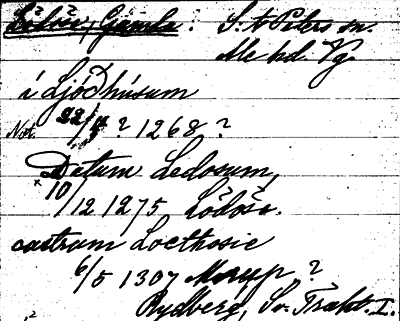 Lödöse, Gamla. S:t Peters sn.
Ale hd. Vg.
i Ljóðhúsum
Not. 22/4 ? 1268 ?
Datum Ledosum,
10/12 1275 Lödöse.
castrum Loethosie
6/5 1307 Morup ?
Rydberg, Sv. Trakt. I.